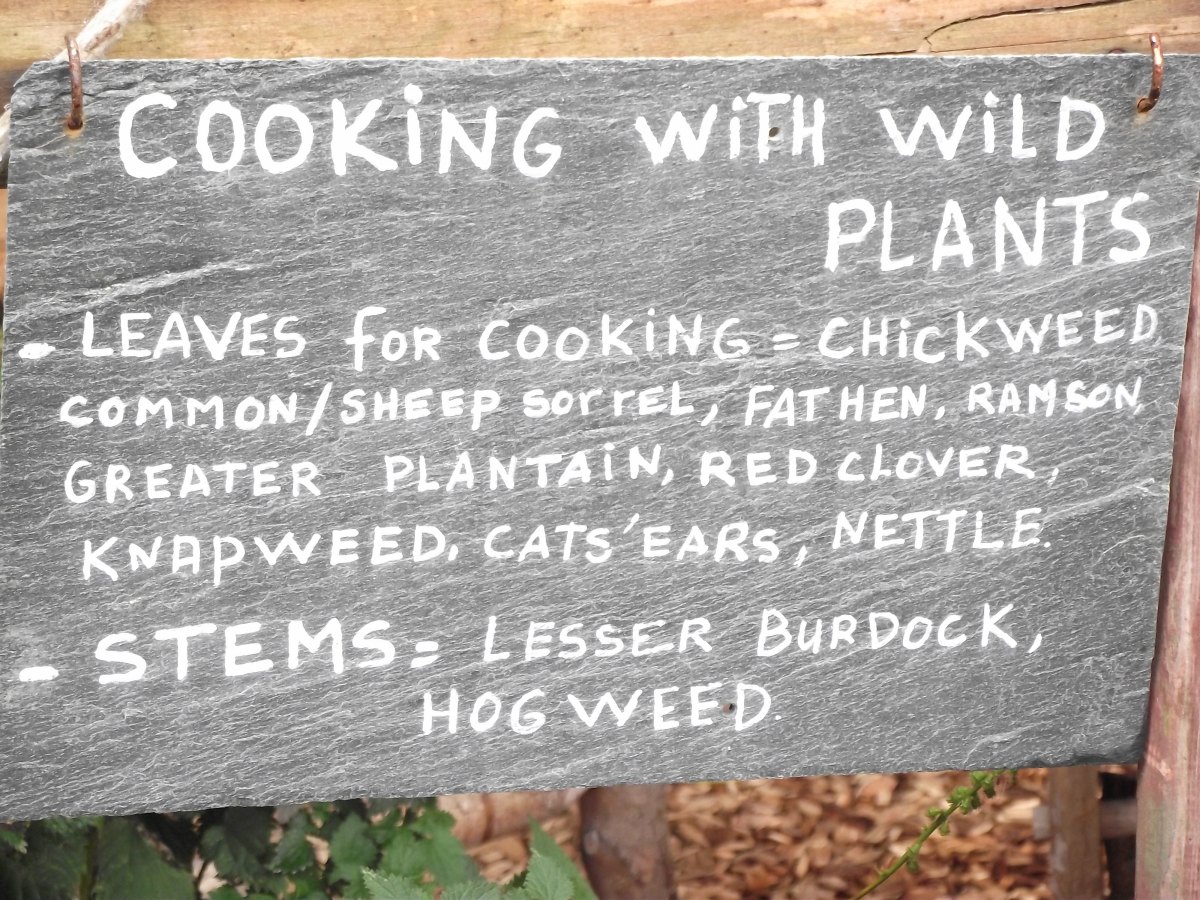 COOKiNG WiTH WiLD
PLANTS
- LEAVES for COOKiNG = CHiCKWEED,
COMMON/SHEEP SorrEL, FATHEN, RAMSON,
GREATER PLANTAiN, RED CLOVER,
KNAPWEED, CATS'EARS, NETTLE.
- STEMS = LESSER BURDOCK,
HOGWEED.